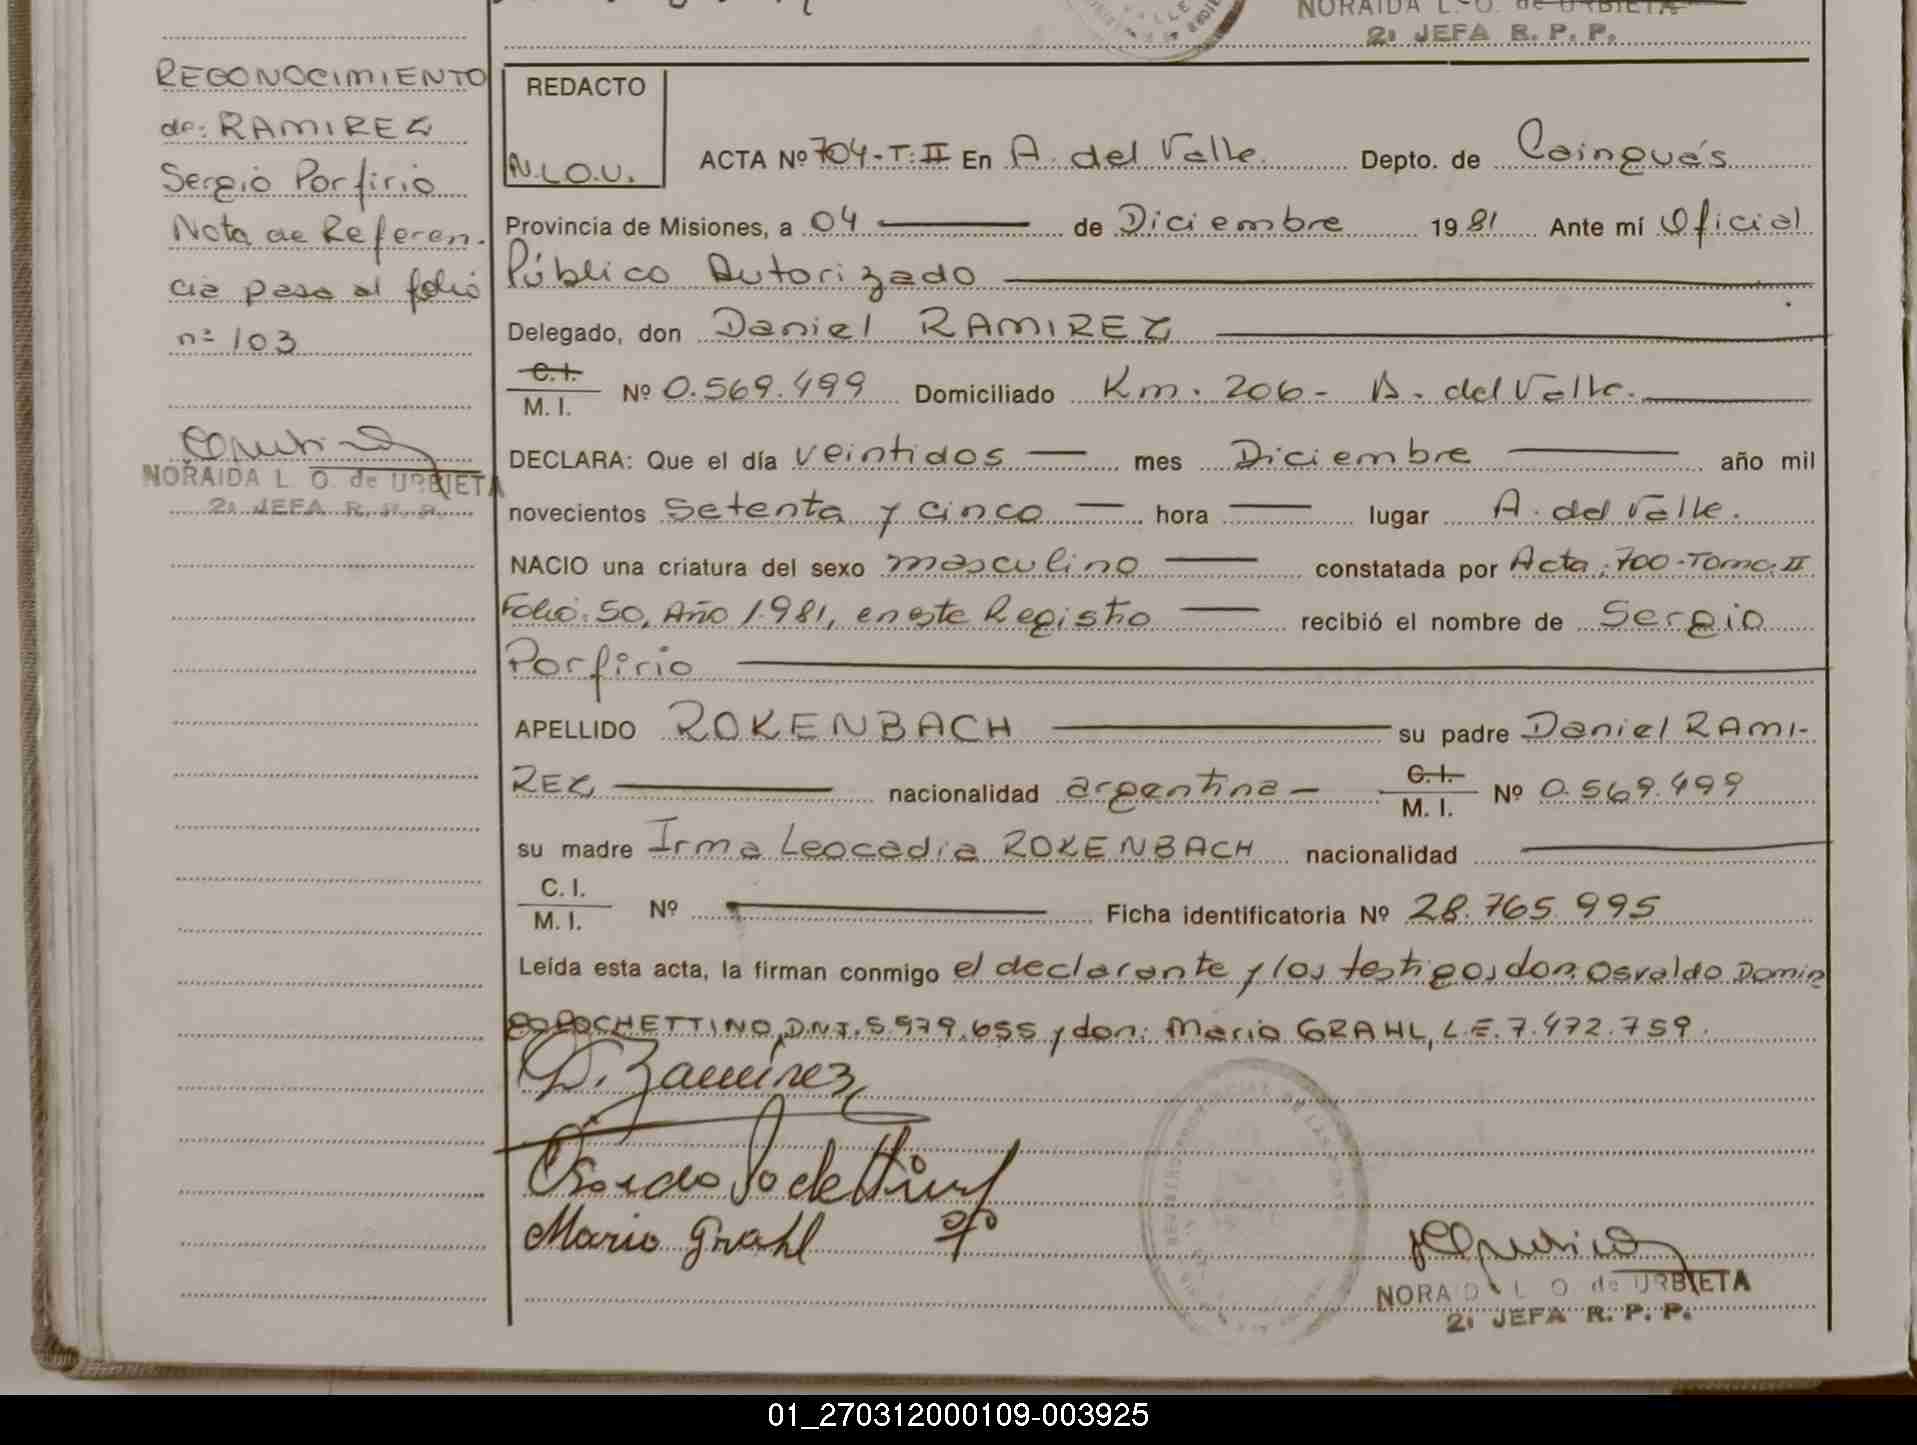 NORAIDA L. O. de URBIETA
2ª JEFA R. P. P.
RECONOCIMIENTO
de: RAMIREZ
Sergio Porfirio
Nota de Referen-
cia pasa al folio
nº 103
NORAIDA L. O. de URBIETA
2ª JEFA R. P. P.
REDACTO
N.L.O.U.
ACTA Nº 704-T:II En A. del Valle. Depto. de Cainguás
Provincia de Misiones, a 04 de Diciembre 1981 Ante mí Oficial
Público Autorizado
Delegado, don Daniel RAMIREZ
C. I.
M. I. Nº 0.569.499 Domiciliado Km. 206- A. del Valle.
DECLARA: Que el día veintidos mes Diciembre año mil
novecientos setenta y cinco hora lugar A. del Valle.
NACIO una criatura del sexo masculino constatada por Acta: 700-Tomo: II
Folio: 50, Año 1.981, en este Registro recibió el nombre de Sergio
Porfirio
APELLIDO ROKENBACH su padre Daniel RAMI-
REZ nacionalidad argentina - C. I.
M. I. Nº 0.569.499
su madre Irma Leocadia ROKENBACH nacionalidad
C. I.
M. I. Nº Ficha identificatoria Nº 28.765.995
Leída esta acta, la firman conmigo el declarante y los testigos don: Osvaldo Domin
POCHETTINO, D.N.I. 5.979.655 y don: Mario GRAHL, L.E. 7.472.759.
D. Ramírez
Mario Grahl
NORAIDA L. O. de URBIETA
2ª JEFA R. P. P.
01_270312000109-003925